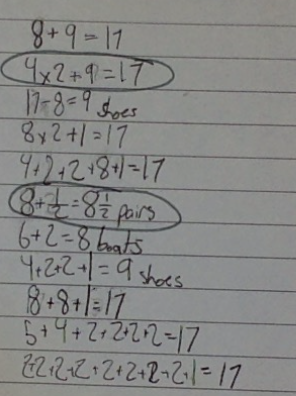 8+9=17
4x2+9=17
17-8=9 shoes
8x2+1=17
4+2+2+8+1=17
8+½=8½ pairs
6+2=8 boats
4+2+2+1=9 shoes
8+8+1=17
5+4+2+2+2+2=17
2+2+2+2+2+2+2+2+1=17